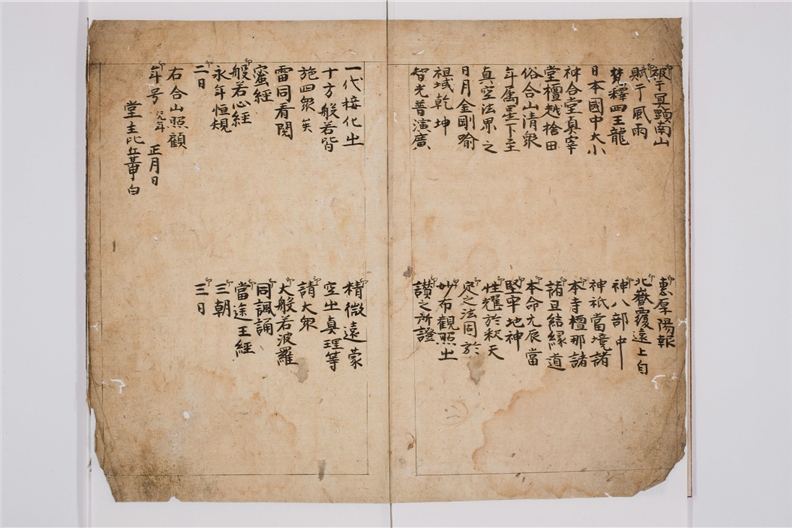 報于冥顕南山 恵厚陽報
賦于風雨 北嶽覆遠上自
梵釋四王龍 神八部中
日本國中大小 神祇當境諸
神合堂真宰 本寺檀那諸
堂檀越捨田 諸旦結縁道
俗合山清衆 本命元辰當
年属星下至 堅牢地神
真空法界之 性耀於秋天
日月金剛喻 定之法同於
祖域乾坤 妙布觀照出
智光普演廣 讃之所證
一代接化出 精微遠蒙
十方般若皆 空出真理等
施四衆矣 請大衆
雷同看閲 大般若波羅
蜜經 同諷誦
般若心經 當途王經
永年恒規 三朝
二日 三日
右合山照顧
年号 年 正月日
堂主比丘 白